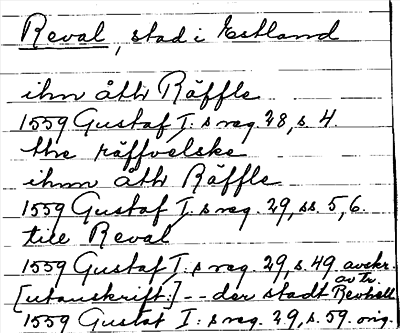 Reval, stad i Estland
ihn åth Räffle
1559 Gustaf I:s reg. 28, s. 4.
the räffvelske
ihnn åth Räffle
1559 Gustaf I:s reg. 29, ss. 5, 6.
till Reval
1559 Gustaf I:s reg. 29, s. 49 avskr.
av tr.
[utanskrift:] -- der stadt Revhell
1559 Gustaf I:s reg. 29, s. 59. orig.